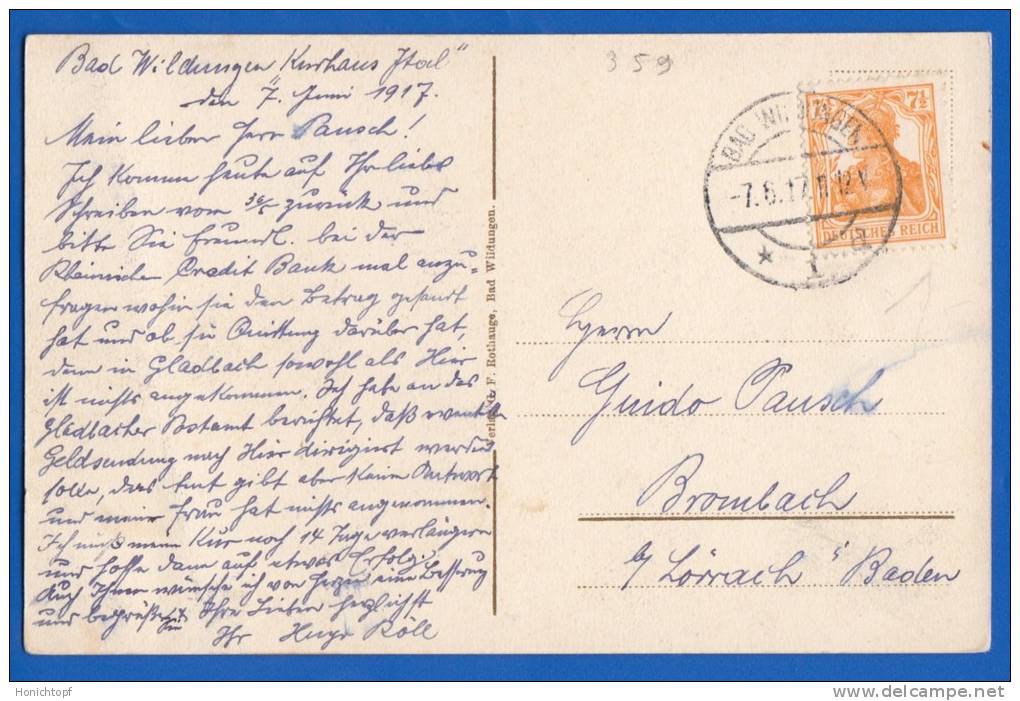 Bad Wildungen Kurhaus Ital"
den 7. Juni 1917.
Mein lieber Herr Pausch!
Ich komme heute auf Ihr liebes
Schreiben vom 30/5 zurück und
bitte Sie freundl. bei der
Rheinischen Credit Bank mal anzu=
fragen wohin sie den Betrag gesandt
hat und ob sie Quittung darüber hat,
denn in Gladbach sowohl als Hier
ist nichts angekommen. Ich habe an das
Gladbacher Postamt berichtet, daß eventl.
Geldsendung nach Hier dirigiert werden
solle, das Amt gibt aber keine Antwort
und meine Frau hat nichts angenommen.
Ich muß meine Kur noch 14 Tage verlängern
und hoffe dann auf etwas Erfolg.
Auch Ihnen wünsche ich von Herzen eine Besserung
und begrüße Sie & Ihre Lieben herzlichst
Ihr Hugo Röll
359
BAD WILDUNGEN
-7.6.17.11-12V.
* 1 a
7½
DEUTSCHES REICH
Verlag G. F. Rothauge, Bad Wildungen.
Herrn
Guido Pausch
Brombach
b/ Lörrach i/ Baden
Honichtopf
www.delcampe.net